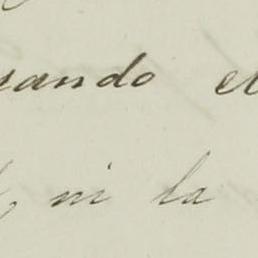 uando el
ni la